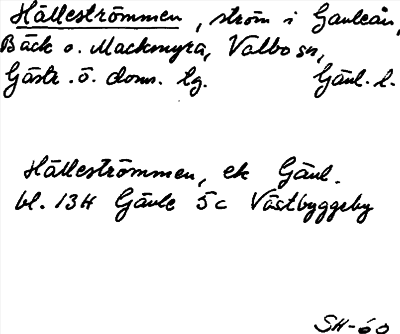 Hälleströmmen, ström i Gavleån,
Bäck o. Mackmyra, Valbo sn,
Gästr. ö. doms. tg. Gävl. l.
Hälleströmmen, ek Gävl.
bl. 13H Gävle 5c Västbyggeby
SH-60